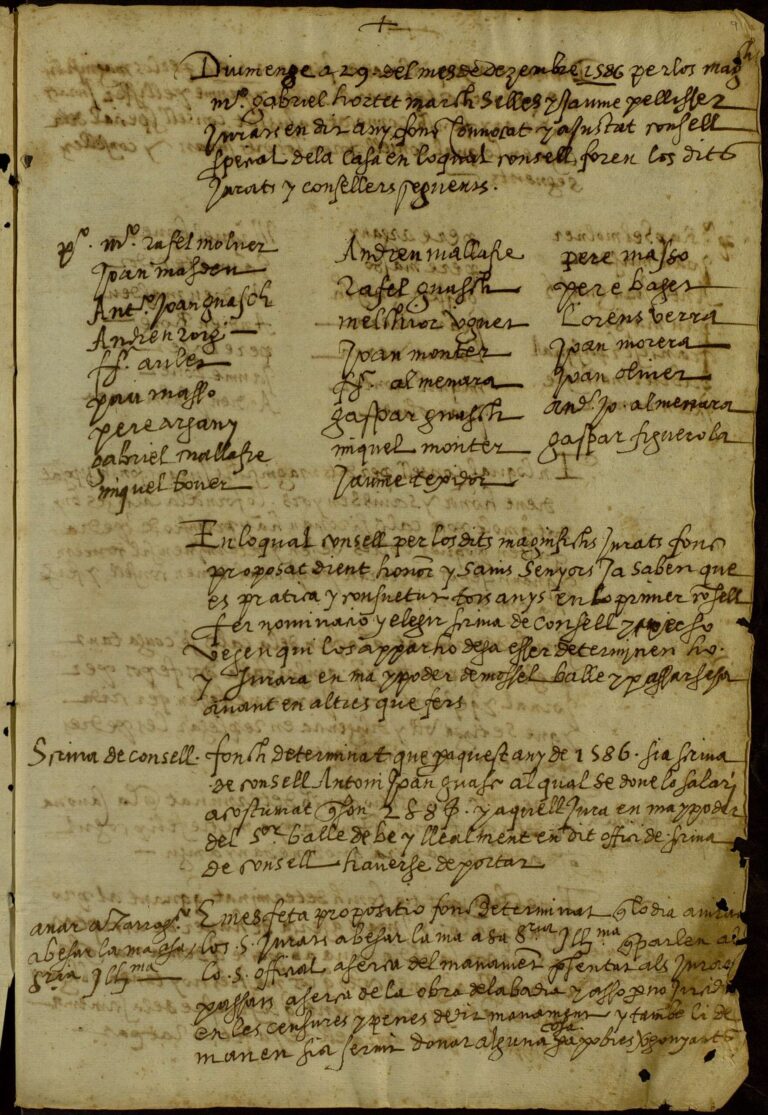 Diumenge a 29 del mes de dezembre 1586 per los magchs
mº. gabriel hortet march Selles y Jaume pellisser
Jurats en dit any fonc Convocat y aiustat consell
spetial dela casa en loqual consell foren los dits
Jurats y consellers seguents.
pº. mº. rafel moluer
Joan masdeu
Antº. Joan guasch
Andreu roig
ff. auber
pau masso
pere argany
gabriel mallafre
miquel bouer
Andreu mallafre
rafel guasch
melchior uguet
Joan monter
ff. almenara
gaspar guasch
miquel monter
Jaume texidor
pere masso
pere baget
Lorens verra
Joan morera
Joan oliuer
andº. Jo. almenara
gaspar figuerola
En loqual consell per los dits magnifichs Jurats fonc
proposat dient honor y Savis Senyors Ja saben que
es pratica y consuetut tots anys en lo primer cosell
fer nominatio y elegir scriua de consell
vegen qui los appar ho dega esser determinen ho.
y Jurara en ma y poder de mossel balle y passar se ha
auant en altres que fers
Scriua de consell. fonch determinat que p aquest any de 1586. sia scriua
de consell Antoni Joan guasc al qual se done lo salari
acostumat q son 288. y aquell Jura en ma y poder
del Sor. balle de be y llealment en dit offici de scriua
de consell hauerse de portar
anar a Tarragª
a besar la ma a sa
Sria Illma
E mes feta propositio fonc Determinat q lo dia
los S. Jurats a besar la ma a sa Sria Illma q parlen ab
lo S. official aserca del manament presentat als Jurats
passats aserca de la obra dela badia y asso p no
en les censures y penes de dit manament y tambe li de
manen sia seruit donar alguna cosa pa pobres